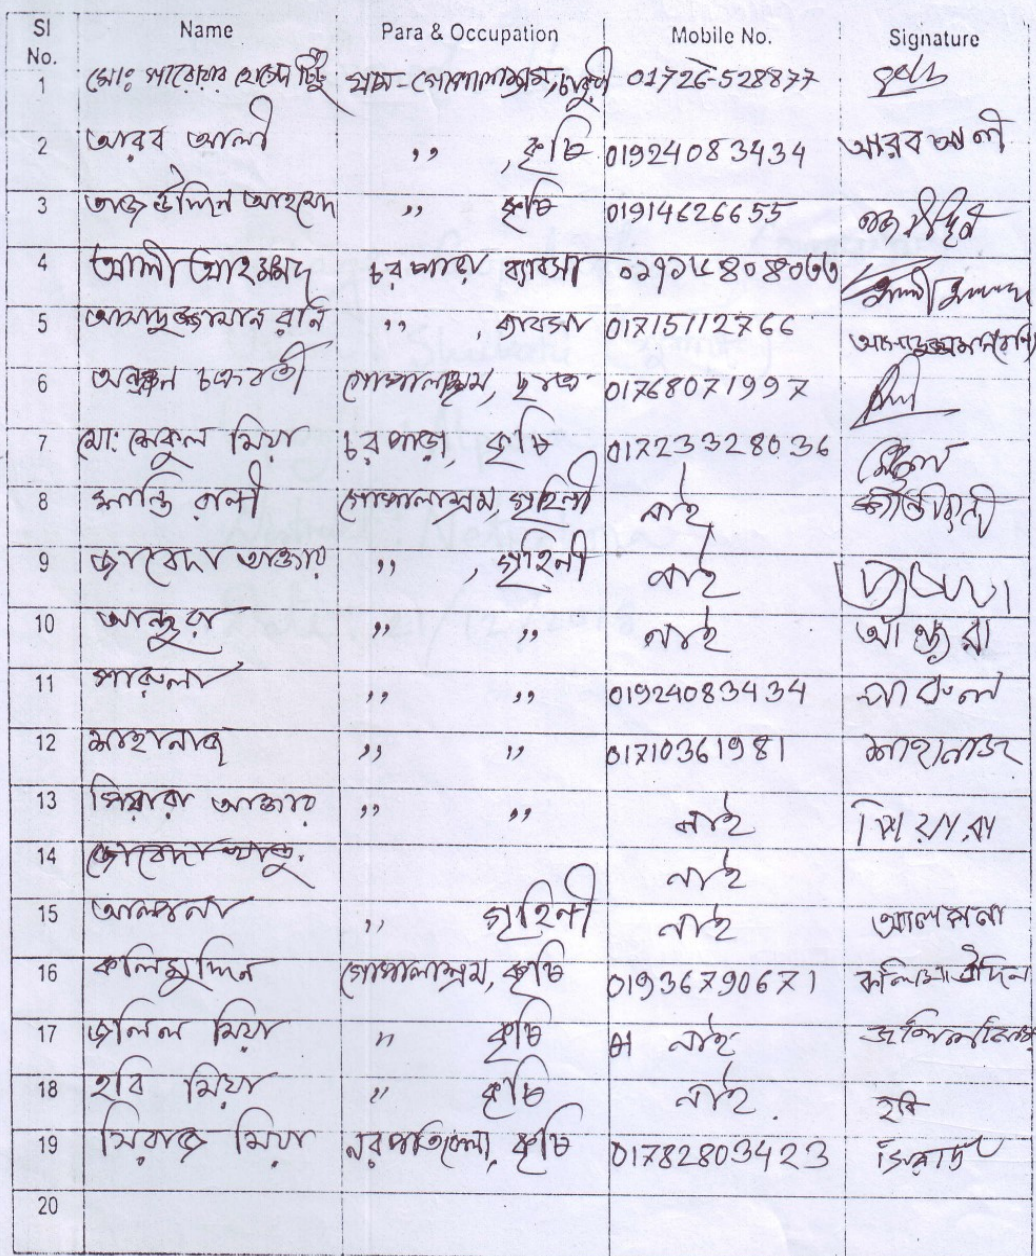 Sl No. Name Para & Occupation Mobile No. Signature
1 মোঃ হোসেন গ্রাম-গোপালাশ্রম, চাকুরী 01726-528877
2 আরব আলী ,, , কৃষি 01924083434 আরব আলী
3 তাজ উদ্দিন আহমেদ ,, কৃষি 01914626655
4 আলী আহমেদ চর পাড়া ব্যাবসা
5 আসাদুজ্জামান রনি ,, ব্যবসা 01715112766 আসাদুজ্জামান রনি
6 চক্রবর্তী গোপালাশ্রম, ছাত্র 01768071997
7 মো: মিয়া চর পাড়া, কৃষি 01723328036
8 শান্তি রানী গোপালাশ্রম, গৃহিনী নাই শান্তি রানী
9 জাবেদা আক্তার ,, , গৃহিনী নাই
10 আন্জুরা ,, ,, নাই আন্জুরা
11 পারুল ,, ,, 01924083434 পারুল
12 শাহানাজ ,, ,, 01710361981 শাহানাজ
13 পিয়ারা আক্তার ,, ,, নাই পিয়ারা
14 জোবেদা নাই
15 আলপনা ,, গৃহিনী নাই আলপনা
16 কলিমুদ্দিন গোপালাশ্রম, কৃষি 01936790671 কলিমউদ্দিন
17 জলিল মিয়া " কৃষি নাই
18 হবি মিয়া " কৃষি নাই . হবি
19 সিরাজ মিয়া কৃষি 01782803423 সিরাজ
20